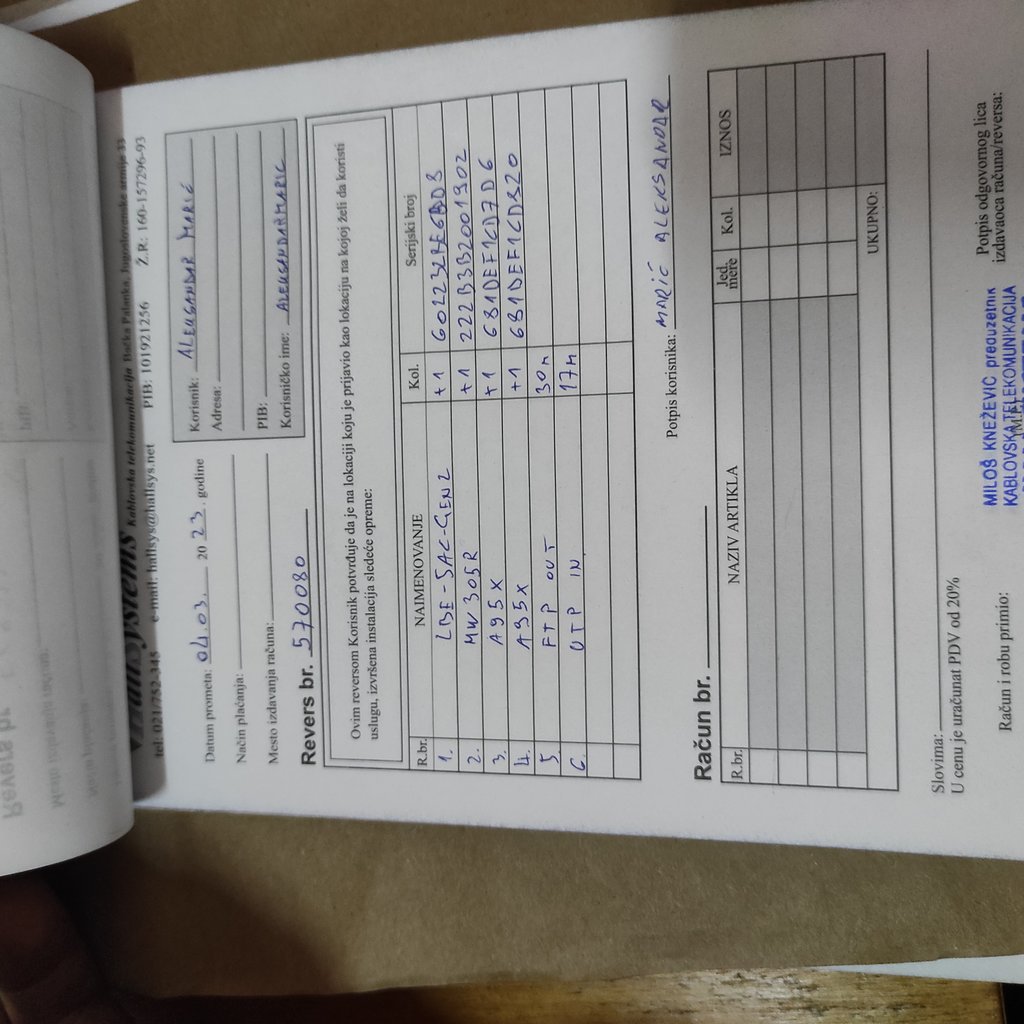 Hallsystems Kablovska telekomunikacija Bačka Palanka, Jugoslovenske armije 33
tel: 021/752-345 e-mail: hallsys@hallsys.net PIB: 101921256 Ž.R.: 160-157296-93
Datum prometa: 04.03. 2023. godine
Način plaćanja:
Mesto izdavanja računa:
Korisnik: ALEKSANDAR MARIĆ
Adresa:
PIB:
Korisničko ime: ALEKSANDARMARIC
Revers br. 570080
Ovim reversom Korisnik potvrđuje da je na lokaciji koju je prijavio kao lokaciju na kojoj želi da koristi
uslugu, izvršena instalacija sledeće opreme:
R.br. NAIMENOVANJE Kol. Serijski broj
1. LBE-5AC-GEN2 +1
2. MW305R +1 222B3B2001902
3. A95X +1 681DEF1CD7D6
4. A95X +1 681DEF1CD820
5 FTP OUT 30m
6 UTP IN 17m
Potpis korisnika: MARIĆ ALEKSANDAR
Račun br.
R.br. NAZIV ARTIKLA Jed. mere Kol. IZNOS
UKUPNO:
Slovima:
U cenu je uračunat PDV od 20%
Račun i robu primio:
Potpis odgovornog lica
izdavaoca računa/reversa:
MILOŠ KNEŽEVIĆ preduzetnik
KABLOVSKA TELEKOMUNIKACIJA